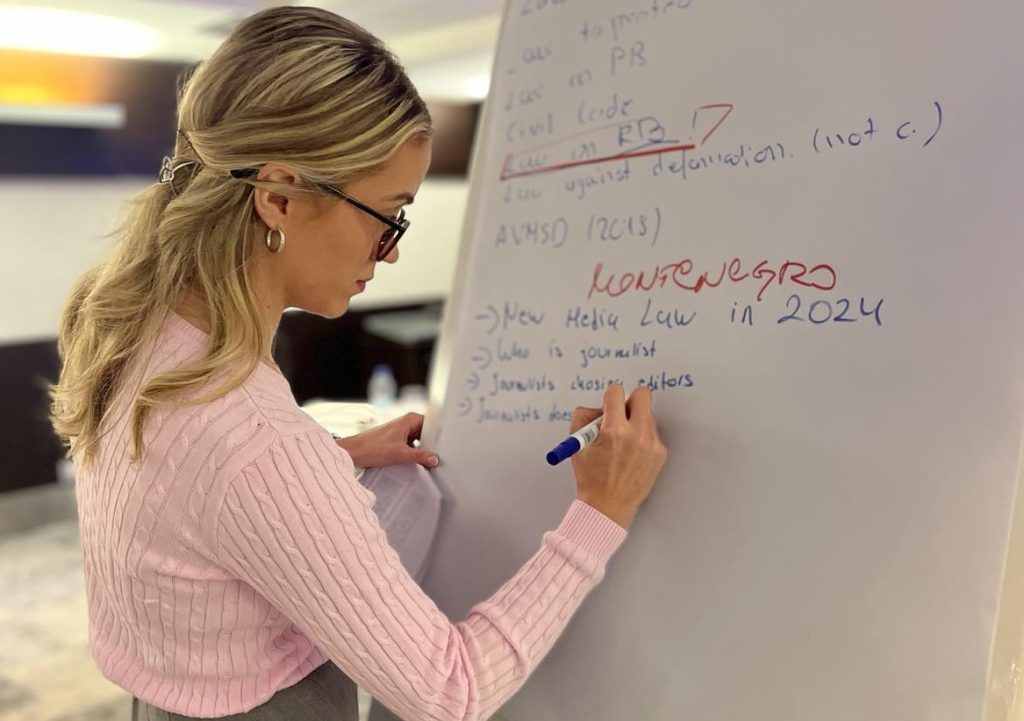 Law
Law to protect
Law on PB
Civil Code
Law on RB !?
Law against defamation. (not c.)
AVMSD (2018)
MONTENEGRO
→ New Media Law in 2024
→ Who is journalist
→ Journalists chosing editors
→ Journalists does